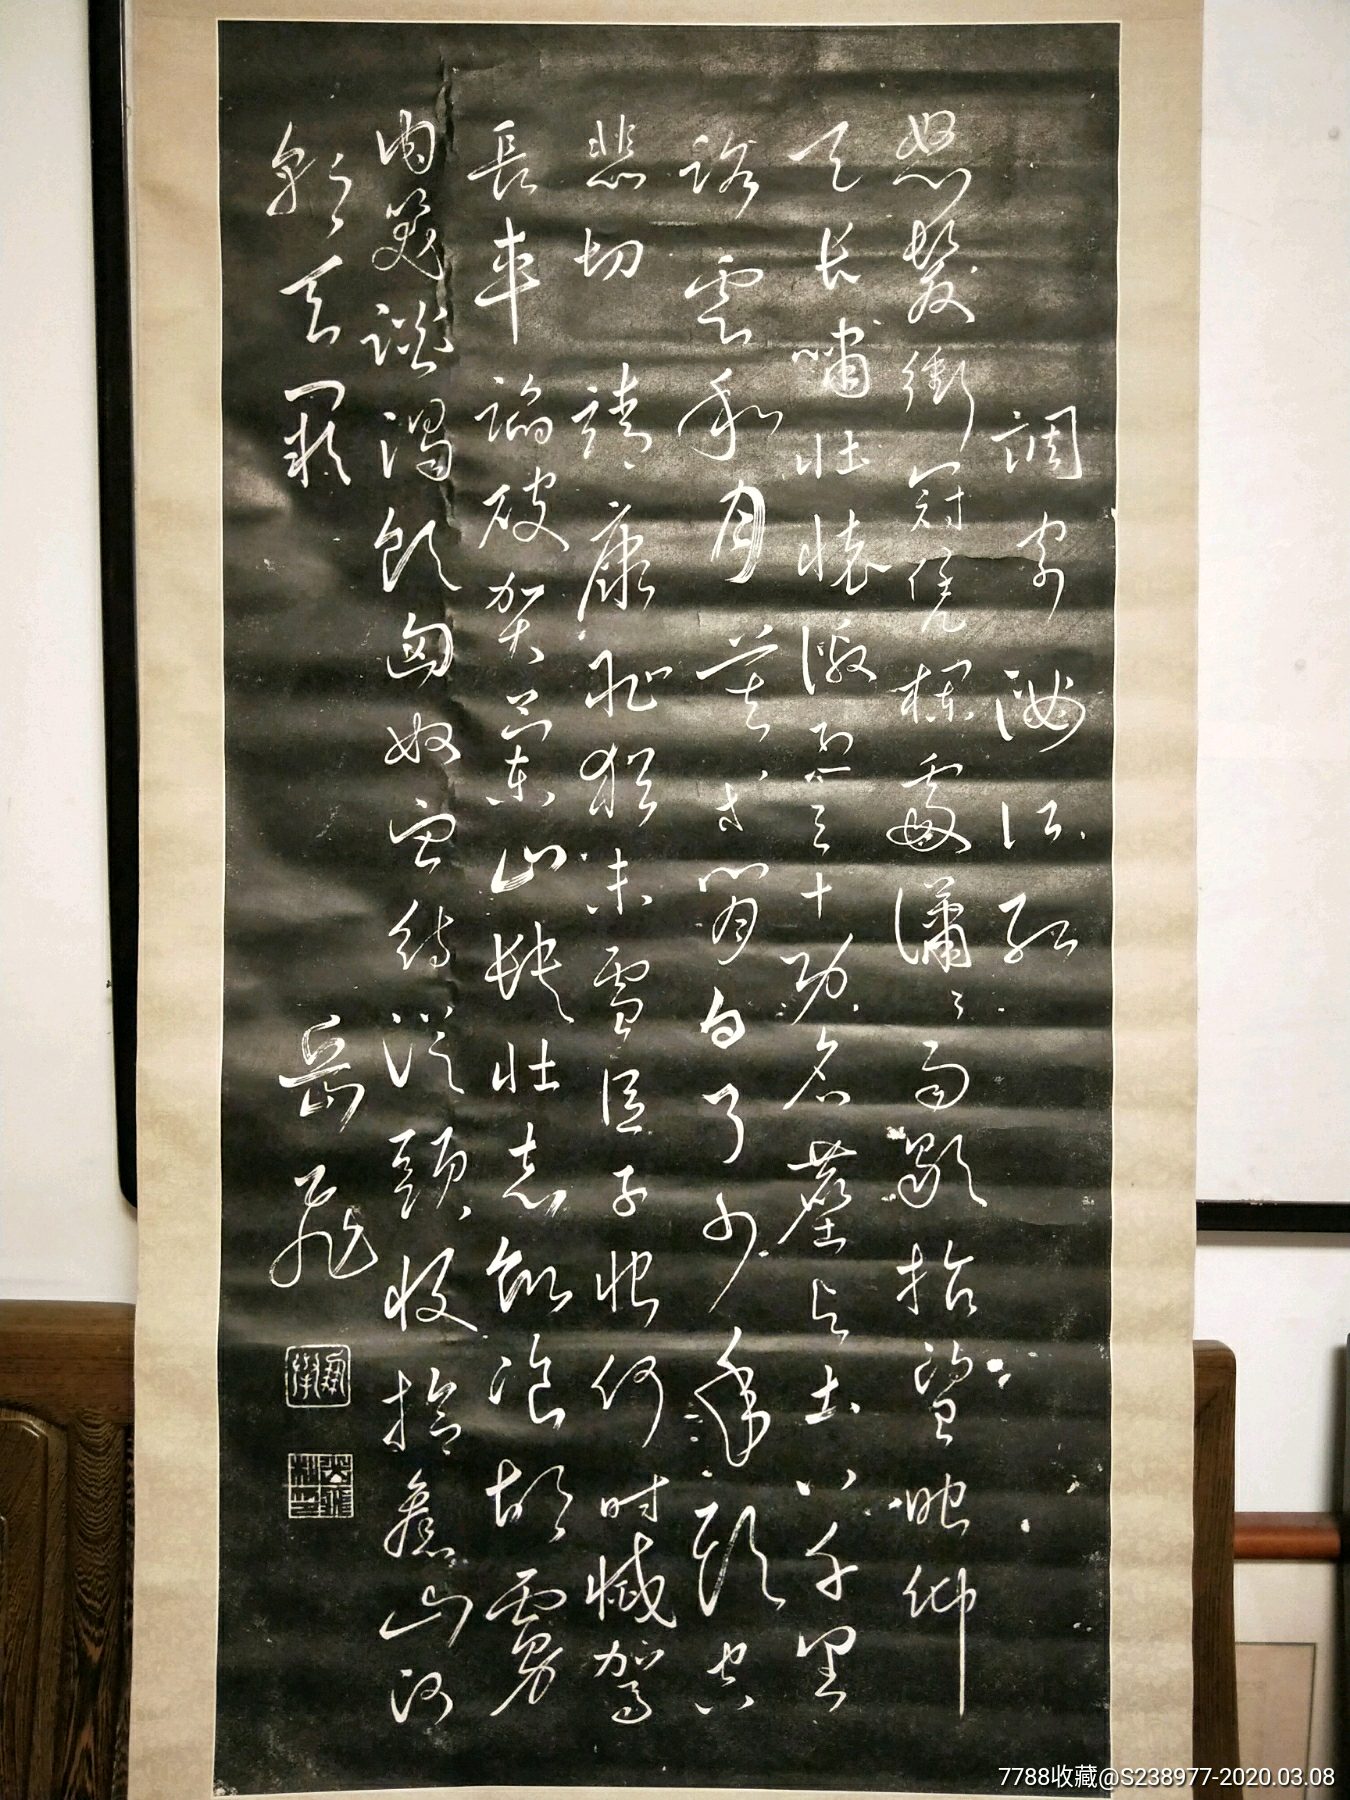 調寄滿江紅
怒髮衝冠凭欄處瀟々雨歇抬望眼仰
天長嘯壯懷激烈三十功名塵與土八千里
路雲和月莫等閒白了少年頭空
悲切靖康恥猶未雪臣子恨何時滅駕
長車踏破賀蘭山缺壯志飢飡胡虜
肉笑談渴飲匈奴血待從頭收拾舊山河
朝天闕 岳飛
7788收藏@S238977-2020.03.08